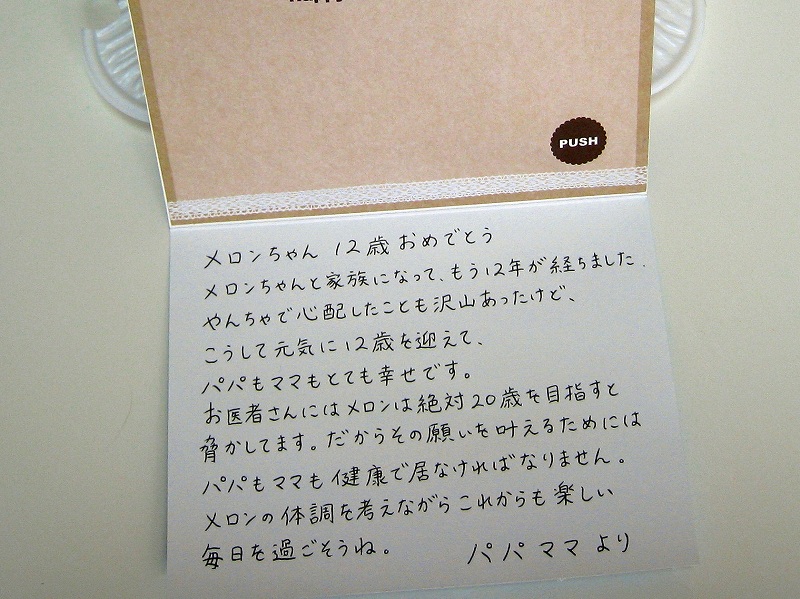 PUSH
メロンちゃん 12歳おめでとう
メロンちゃんと家族になって、もう12年が経ちました.
やんちゃで心配したことも沢山あったけど、
こうして元気に12歳を迎えて、
パパもママもとても幸せです。
お医者さんにはメロンは絶対20歳を目指すと
脅かしてます。だからその願いを叶えるためには
パパもママも健康で居なければなりません。
メロンの体調を考えながらこれからも楽しい
毎日を過ごそうね。 パパママより